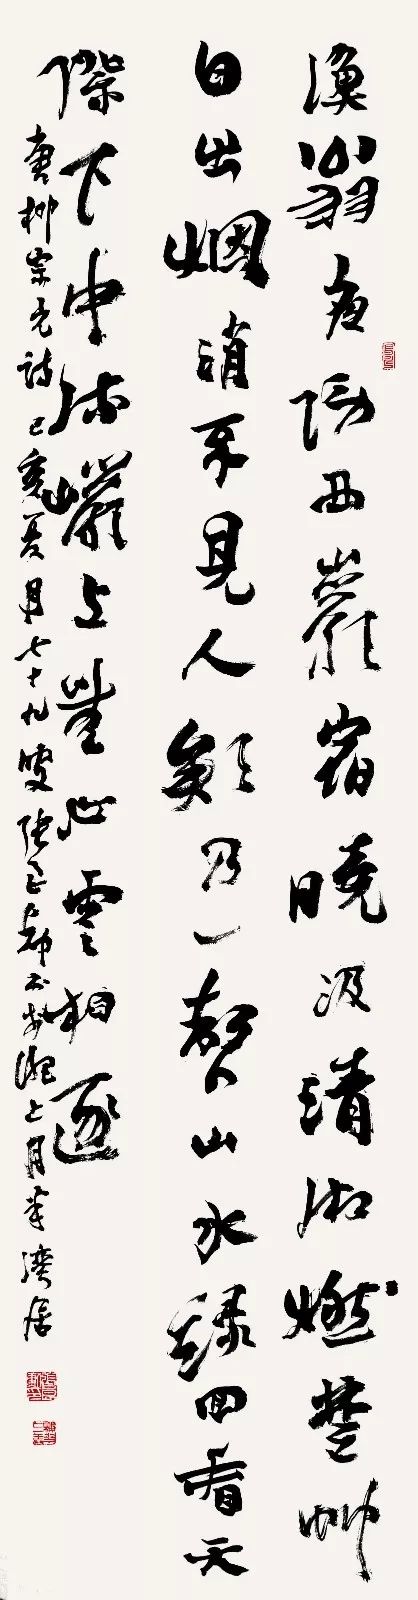 漁翁夜傍西巖宿曉汲清湘燃楚竹
日出烟消不見人欸乃一聲山水緑回看天
際下中流巖上無心雲相逐
唐柳宗元詩己亥夏月七十九叟張書於灕上月牙灣居